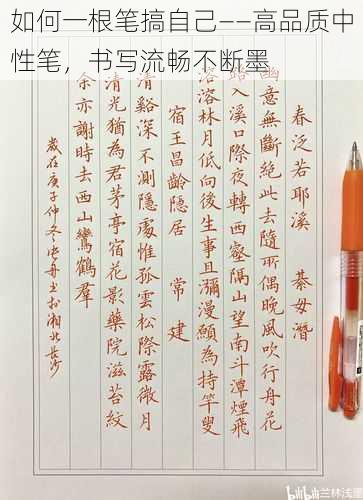 如何一根笔搞自己——高品质中
性笔，书写流畅不断墨
春泛若耶溪　綦毋潜
幽意無斷絕此去隨所偶晚風吹行舟花
路入溪口際夜轉西壑隔山望南斗潭煙飛
溶溶林月低向後生事且瀰漫願為持竿叟
宿王昌齡隱居　常建
清谿深不測隱處惟孤雲松際露微月
清光猶為君茅亭宿花影藥院滋苔紋
余亦謝時去西山鸞鶴群
歲在庚子仲冬浩舟書於湘北長沙
bilibili兰林浅墨